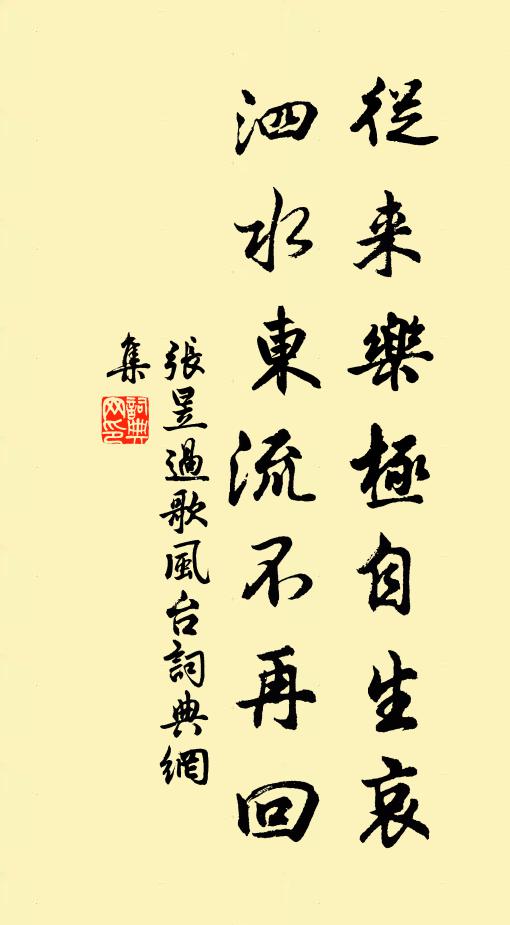 從来樂極自生哀
泗水東流不再回
張昱過歌風台詞典網
集
詞典网印